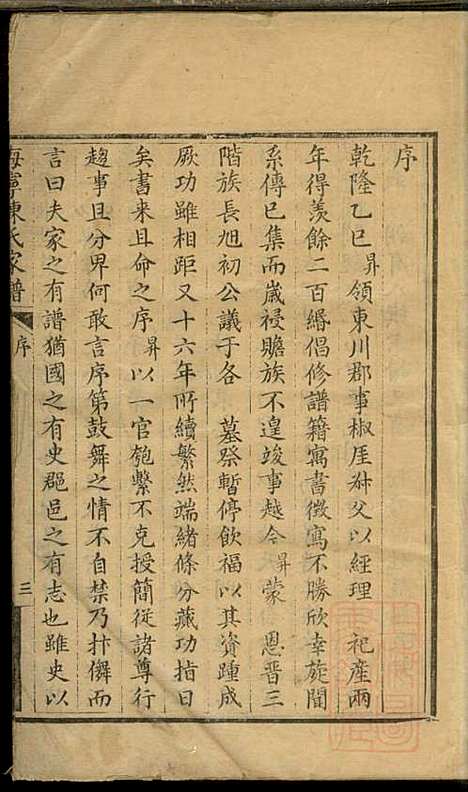 序
乾隆乙巳昇領東川郡事椒厓叔父以經理 祀產兩
年得羨餘二百緡倡修譜籍寓書徵寫不勝欣幸旋聞
系傳已集而歲祲贍族不遑竣事越今昇蒙 恩晋三
階族長旭初公議于各 墓祭暫停飲福以其資踵成
厥功雖相距又十六年所續繁然端緒條分蕆功指日
矣書来且命之序昇以一官匏繫不克授簡從諸尊行
趨事且分卑何敢言序第鼓舞之情不自禁乃抃儛而
言曰夫家之有譜猶國之有史郡邑之有志也雖史以
海寧陳氏家譜 序 三